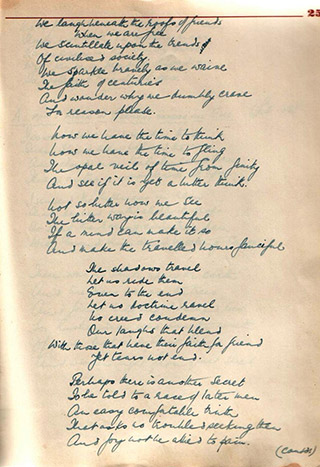 25
We laugh beneath the roofs of friends
When we are free
We scintillate upon the trends of
Of civilised society
We sparkle bravely as we waive
The faith of centuries
And wonder why we dumbly crave
For reason please.
Now we have the time to think
Now we have the time to fling
The opal veils of time from
And see if it is yet a bitter thing.
Not so bitter now we see
The bitter way is beautiful
If a mind can make it so
And make the travelled hours fanciful
The shadows travel
Let us ride them
Even to the end
Let no doctrine ravel
No creed condemn
Our laughs that blend
With those that have their faith for friend
Yet tears not end.
Perhaps there is another secret
To be told to a race of later men
An easy comfortable truth
That asks no trouble seeking then
And joy not be akin to pain.
(Contd)